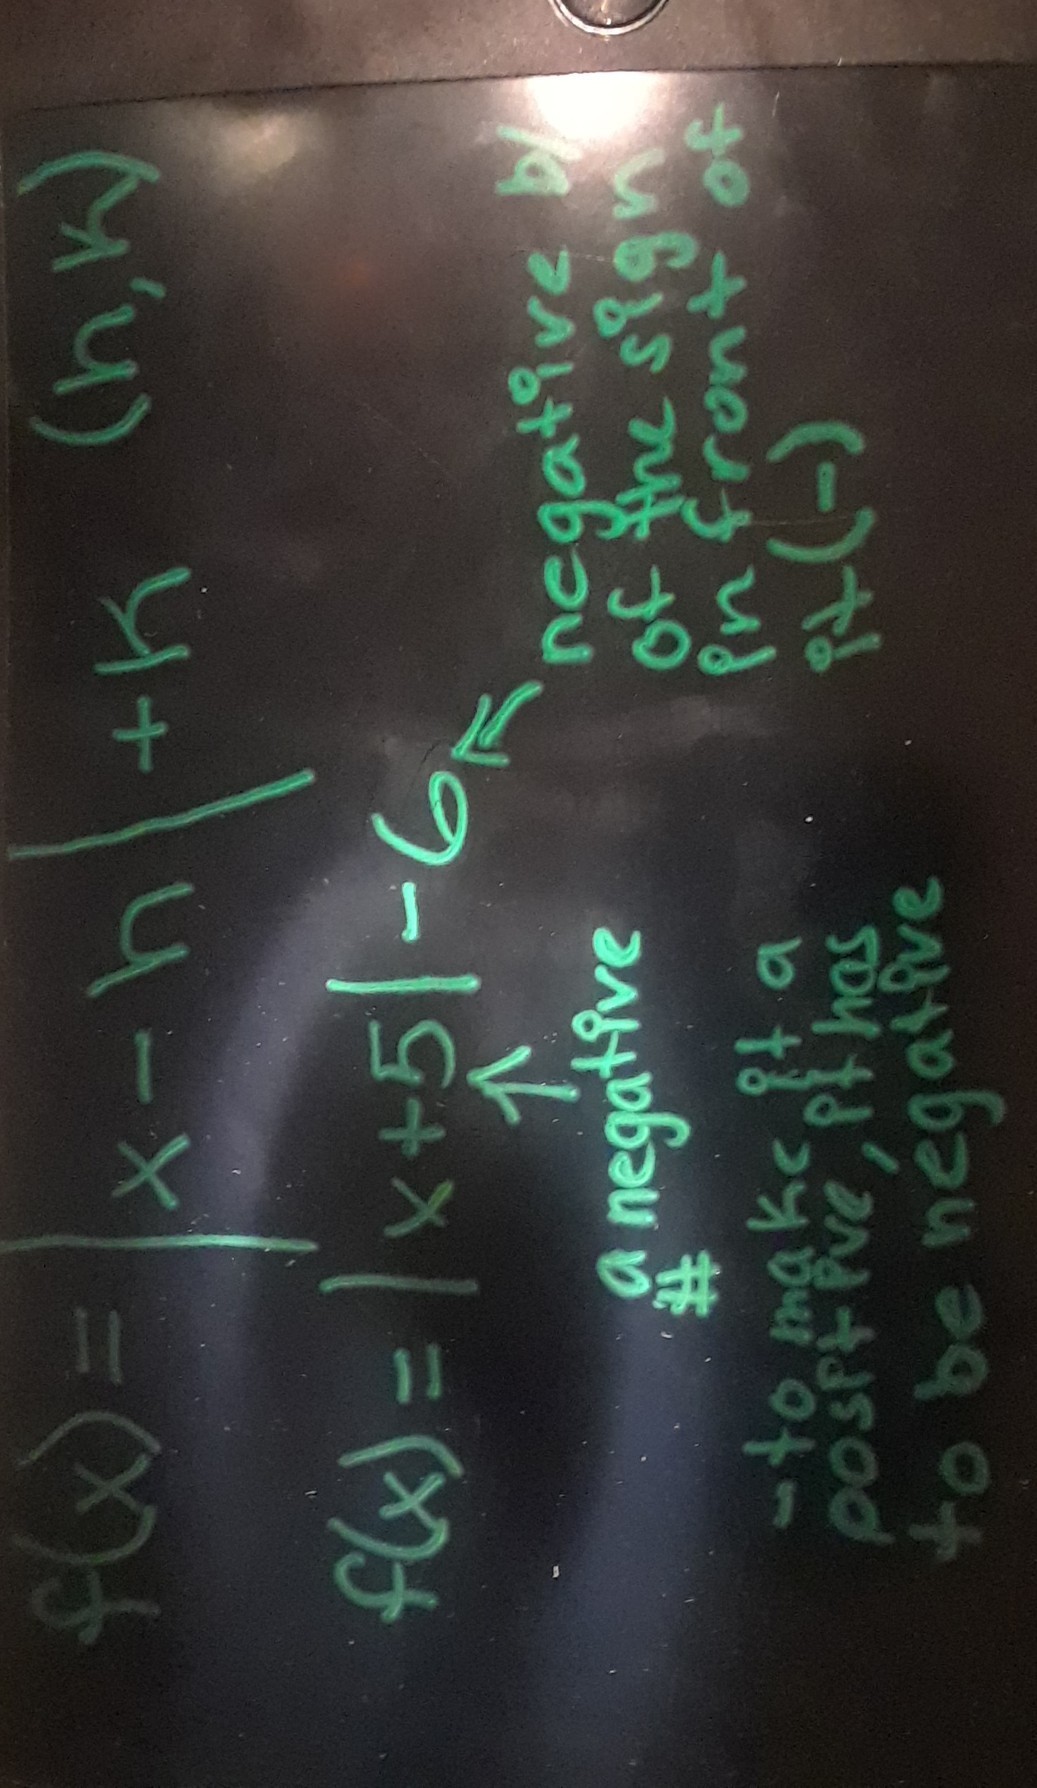 f(x) = |x - h| + k (h, k)
f(x) = |x + 5| - 6
a negative
#
- to make it a
positive, it has
to be negative
negative b/
of the sign
in front of
it (-)